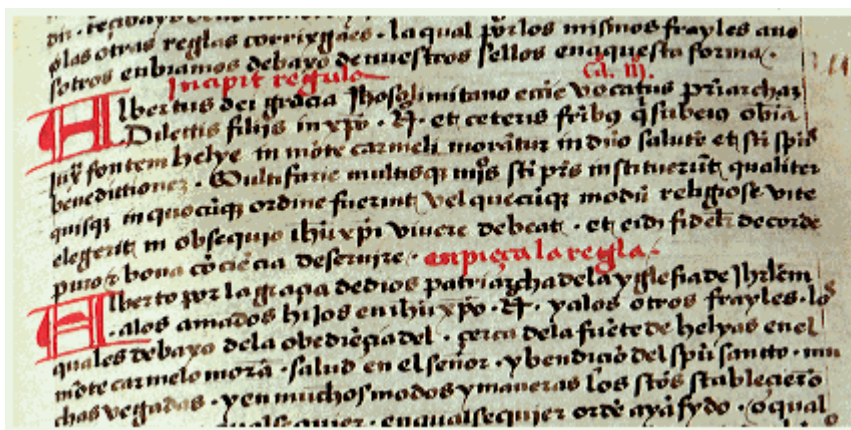 glas otras reglas corrixgães · la qual por los mismos frayles auo
sotros enbiamos debaxo de nuestros sellos enaquesta forma ·
Incipit regula Ca. iij.
Albertus dei gracia Jhosolimitano eccie vocatus priarchaz
Dilettis filijs in xpo · R̃. et ceteris fribus q̃ subeius obia
iux̃ fontem helye in mõte carmeli morãtur in dño salutẽ et sti spũs
benedictionez · Multifarie multisqz mõs sti pr̃s instituerũt qualiter
quisqz in quocũqz ordine fuerint vel quecũqz modũ religiose vite
elegerit in obsequio ihũ xpi viuere debeat · et eidi fideli de corde
puro z bona cõciẽcia deseruire · enpieça la regla ·
Alberto por la graçia de dios patriarcha dela yglesia de Jhrlem
· alos amados hijos en ihũ xpo · R̃. yalos otros frayles · los
quales debaxo dela obediẽçia del · çerca dela fuẽte de helyas en el
mõte carmelo morã · salud en el señor · y bendiciõ del spũ santto · mu
chas vegadas · y en muchos modos y maneras los stõs stableçierõ
qualsequier · en qualsequier ordẽ ayã sydo · o qual